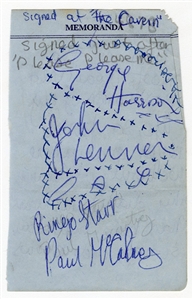 Signed at The Cavern
MEMORANDA
Signed Just after
"Please Please me"
George
Harrison
John
Lennon
Ringo Starr
Paul McCartney